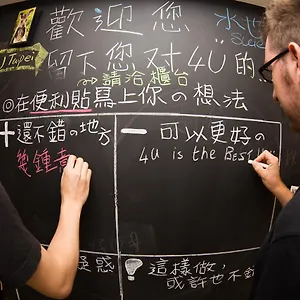 歡迎您
水世
Taipei
留下您對4U的
請洽櫃台
◎在便利貼寫上你の想法
+ 還不錯の地方
幾鍾
— 可以更好の
4U is the Best
疑惑
這樣做,
或許也不錯